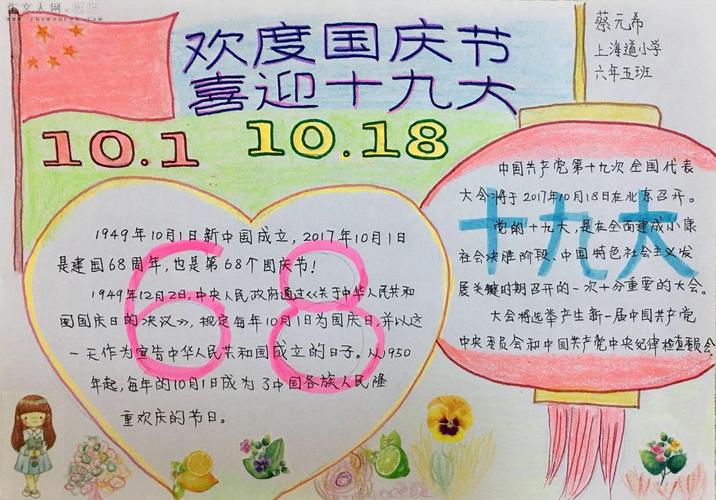 作文人网
www.zuowenren.com
欢度国庆节
喜迎十九大
蔡元希
上海道小学
六年五班
10.1
10.18
中国共产党第十九次全国代表
大会将于2017年10月18日在北京召开。
党的十九大,是在全面建成小康
社会决胜阶段、中国特色社会主义发
展关键时期召开的一次十分重要的大会。
大会将选举产生新一届中国共产党
中央委员会和中国共产党中央纪律检查委员会。
十九大
1949年10月1日新中国成立,2017年10月1日
是建国68周年,也是第68个国庆节!
1949年12月2日,中央人民政府通过《关于中华人民共和
国国庆日的决议》,规定每年10月1日为国庆日,并以这
一天作为宣告中华人民共和国成立的日子。从1950
年起,每年的10月1日成为了中国各族人民隆
重欢庆的节日。
68